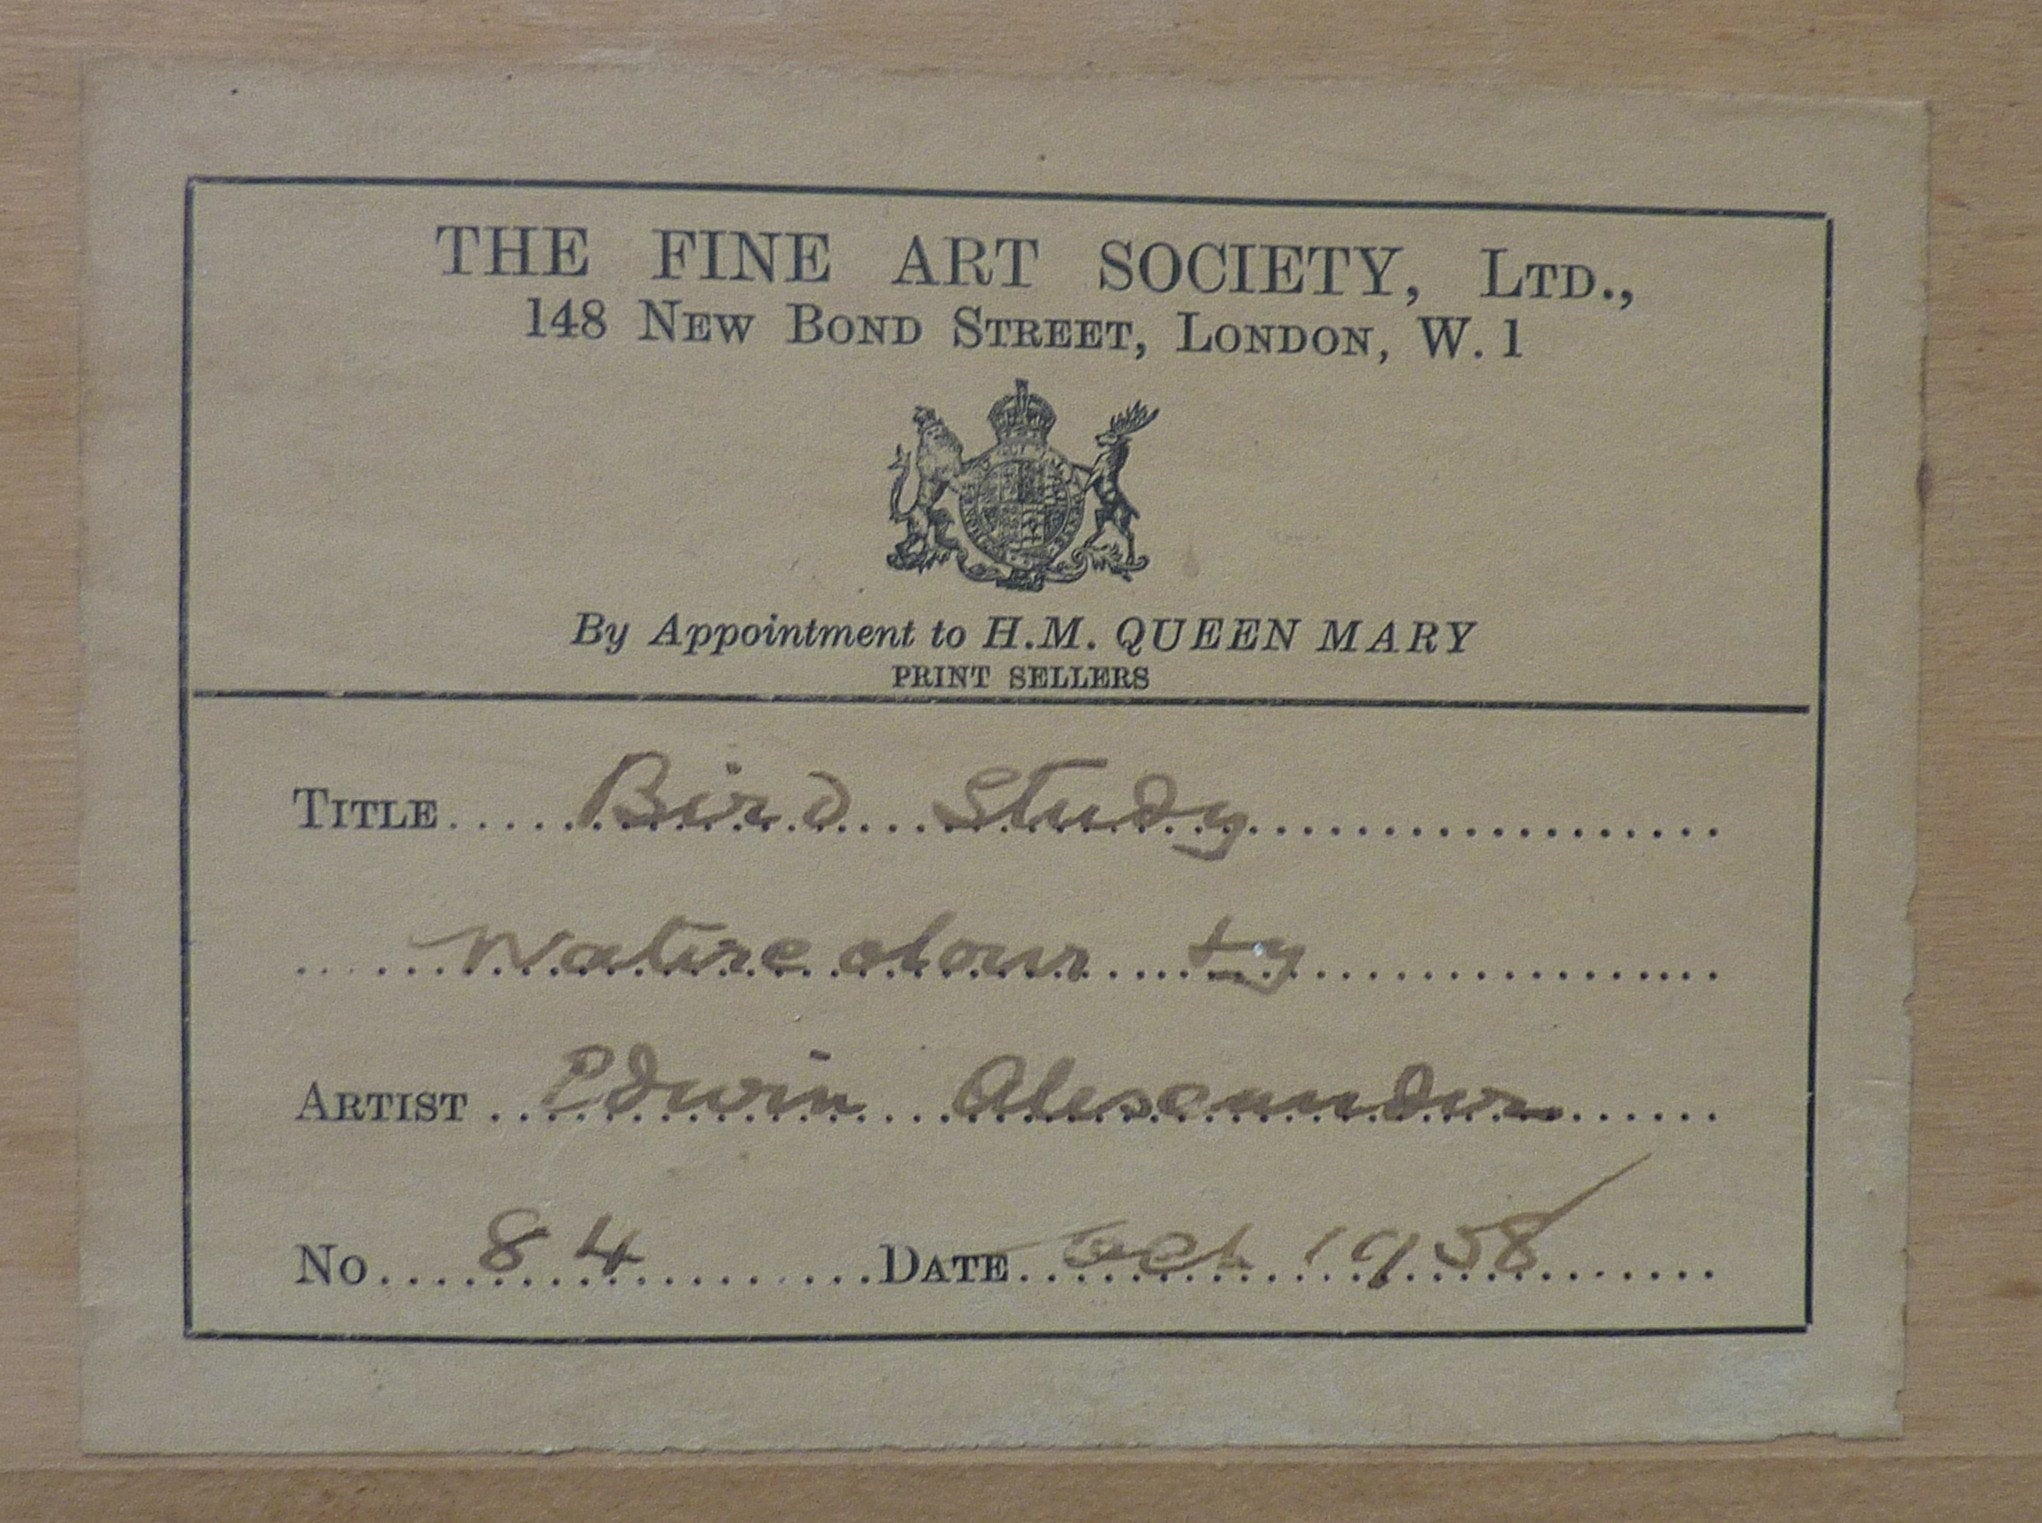 THE FINE ART SOCIETY, LTD.,
148 NEW BOND STREET, LONDON, W. 1
By Appointment to H.M. QUEEN MARY
PRINT SELLERS
TITLE Bird Study
Watercolour by
ARTIST Edwin Alexander
No 84 DATE Oct 1958